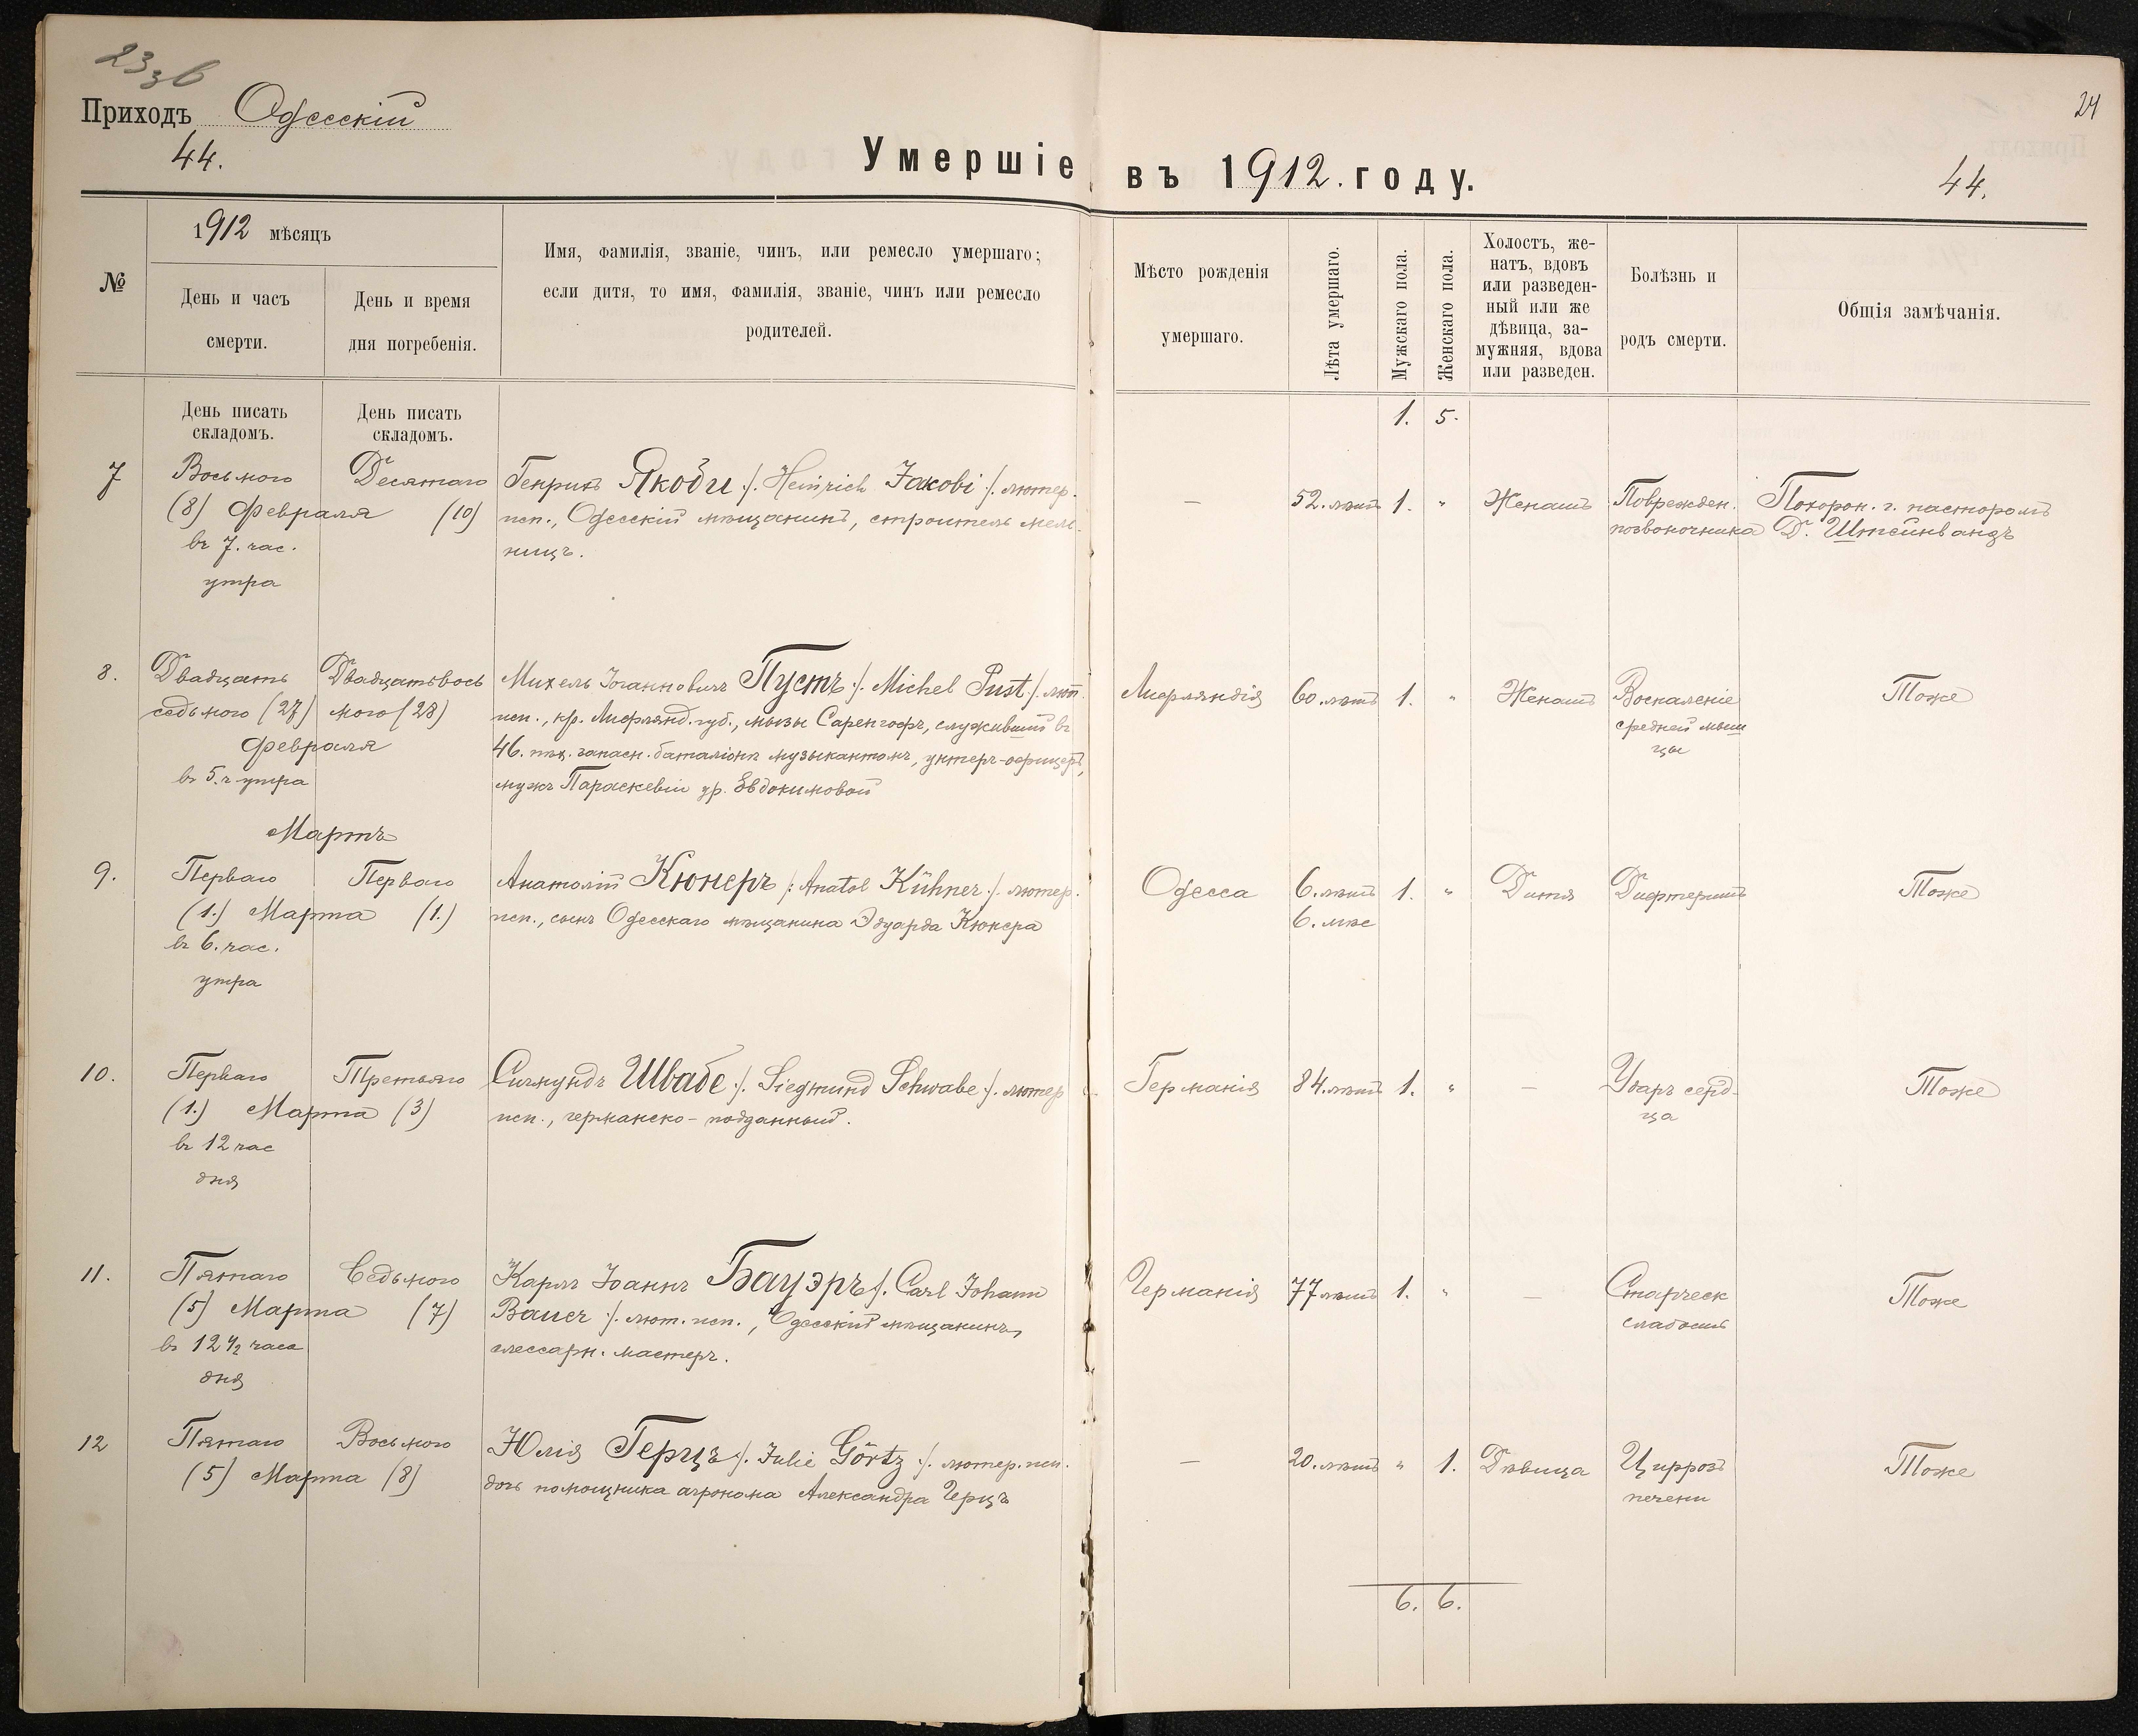 23
36
Приходъ Одесскій
44.
Умершіе въ 1912. году.
24
44.
№
1912 мѣсяцъ
День и часъ
смерти.
День и время
дня погребенія.
Имя, фамилія, званіе, чинъ, или ремесло умершаго;
если дитя, то имя, фамилія, званіе, чинъ или ремесло
родителей.
Мѣсто рожденія
умершаго.
Лѣта умершаго.
Мужскаго пола.
Женскаго пола.
Холостъ, же-
натъ, вдовъ
или разведен-
ный или же
дѣвица, за-
мужняя, вдова
или разведен.
Болѣзнь и
родъ смерти.
Общія замѣчанія.
День писать
складомъ.
День писать
складомъ.
1. 5.
7 Восьмого Десятаго Генрихъ Якоби /. Heinrich Jakobi /. лютер. — 52. лѣтъ 1. " Женатъ Поврежден. Похорон. г. пасторомъ
(8) Февраля (10) исп., Одесскій мѣщанинъ, строитель мель- позвоночника Dr. Штейнвандъ
въ 7. час. ницъ.
утра
8. Двадцать Двадцатьвось Михель Іоганновичъ Пустъ /. Michel Pust /. лют. Лифляндія 60 лѣтъ 1. " Женатъ Воспаленіе Тоже
седьмого (27) мого (28) исп., кр. Лифлянд. губ., мызы Саренгофъ, служившій въ средней мыш
Февраля 46. пѣх. запасн. баталіонѣ музыкантомъ, унтеръ-офицеръ, цы
въ 5. ч утра мужъ Параскевіи ур. Евдокимовой
Мартъ
9. Перваго Перваго Анатолій Кюнеръ /: Anatol Kühner /. лютер. Одесса 6. лѣтъ 1. " Дитя Дифтеритъ Тоже
(1.) Марта (1.) исп., сынъ Одесскаго мѣщанина Эдуарда Кюнера 6. мѣс
въ 6. час.
утра
10. Перваго Третьяго Сигмундъ Швабе /. Siegmund Schwabe /. лютер Германія 84. лѣтъ 1. " — Ударъ серд- Тоже
(1.) Марта (3) исп., германско-подданный. ца
въ 12 час
дня
11. Пятаго Седьмого Карлъ Іоаннъ Бауэръ /. Carl Johann Германія 77 лѣтъ 1. " — Старческ Тоже
(5) Марта (7) Bauer /. лют. исп., Одесскій мѣщанинъ, слабость
въ 12 1/2 часа слесарн. мастеръ.
дня
12 Пятаго Восьмого Юлія Герцъ /. Julie Görtz /. лютер. исп. — 20. лѣтъ " 1. Дѣвица Циррозъ Тоже
(5) Марта (8) дочь помощника агронома Александра Герцъ печени
6. 6.